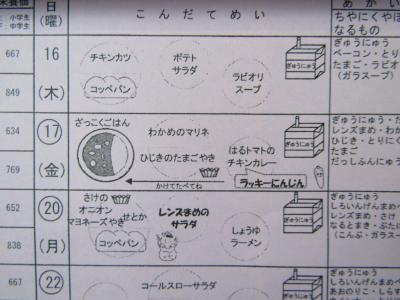 栄養価
小学生
中学生
日
(曜)
こんだてめい
あかい
ちやにくやほ
なるもの
667
849
16
(木)
チキンカツ
コッペパン
ポテト
サラダ
ラビオリ
スープ
ぎゅうにゅう
ぎゅうにゅう
ベーコン・とり
たまご・ラビオ
(ガラスープ)
634
769
17
(金)
ざっこくごはん
わかめのマリネ
ひじきのたまごやき
はるトマトの
チキンカレー
かけてたべてね
ラッキーにんじん
ぎゅうにゅう
ぎゅうにゅう・た
レンズまめ・わか
ひじき・とりにく
たまご
だっしふんにゅう
652
838
20
(月)
さけの
オニオン
マヨネーズやき
せとか
コッペパン
レンズまめの
サラダ
しょうゆ
ラーメン
ぎゅうにゅう
ぎゅうにゅう
しろいんげんまめペ
レンズまめ・さけ
なると・ぶた
(こんぶ・ガラスー
667
22
コールスローサラダ
ぎゅうにゅう
しろいんげんまめ
あおのりこ・しらす